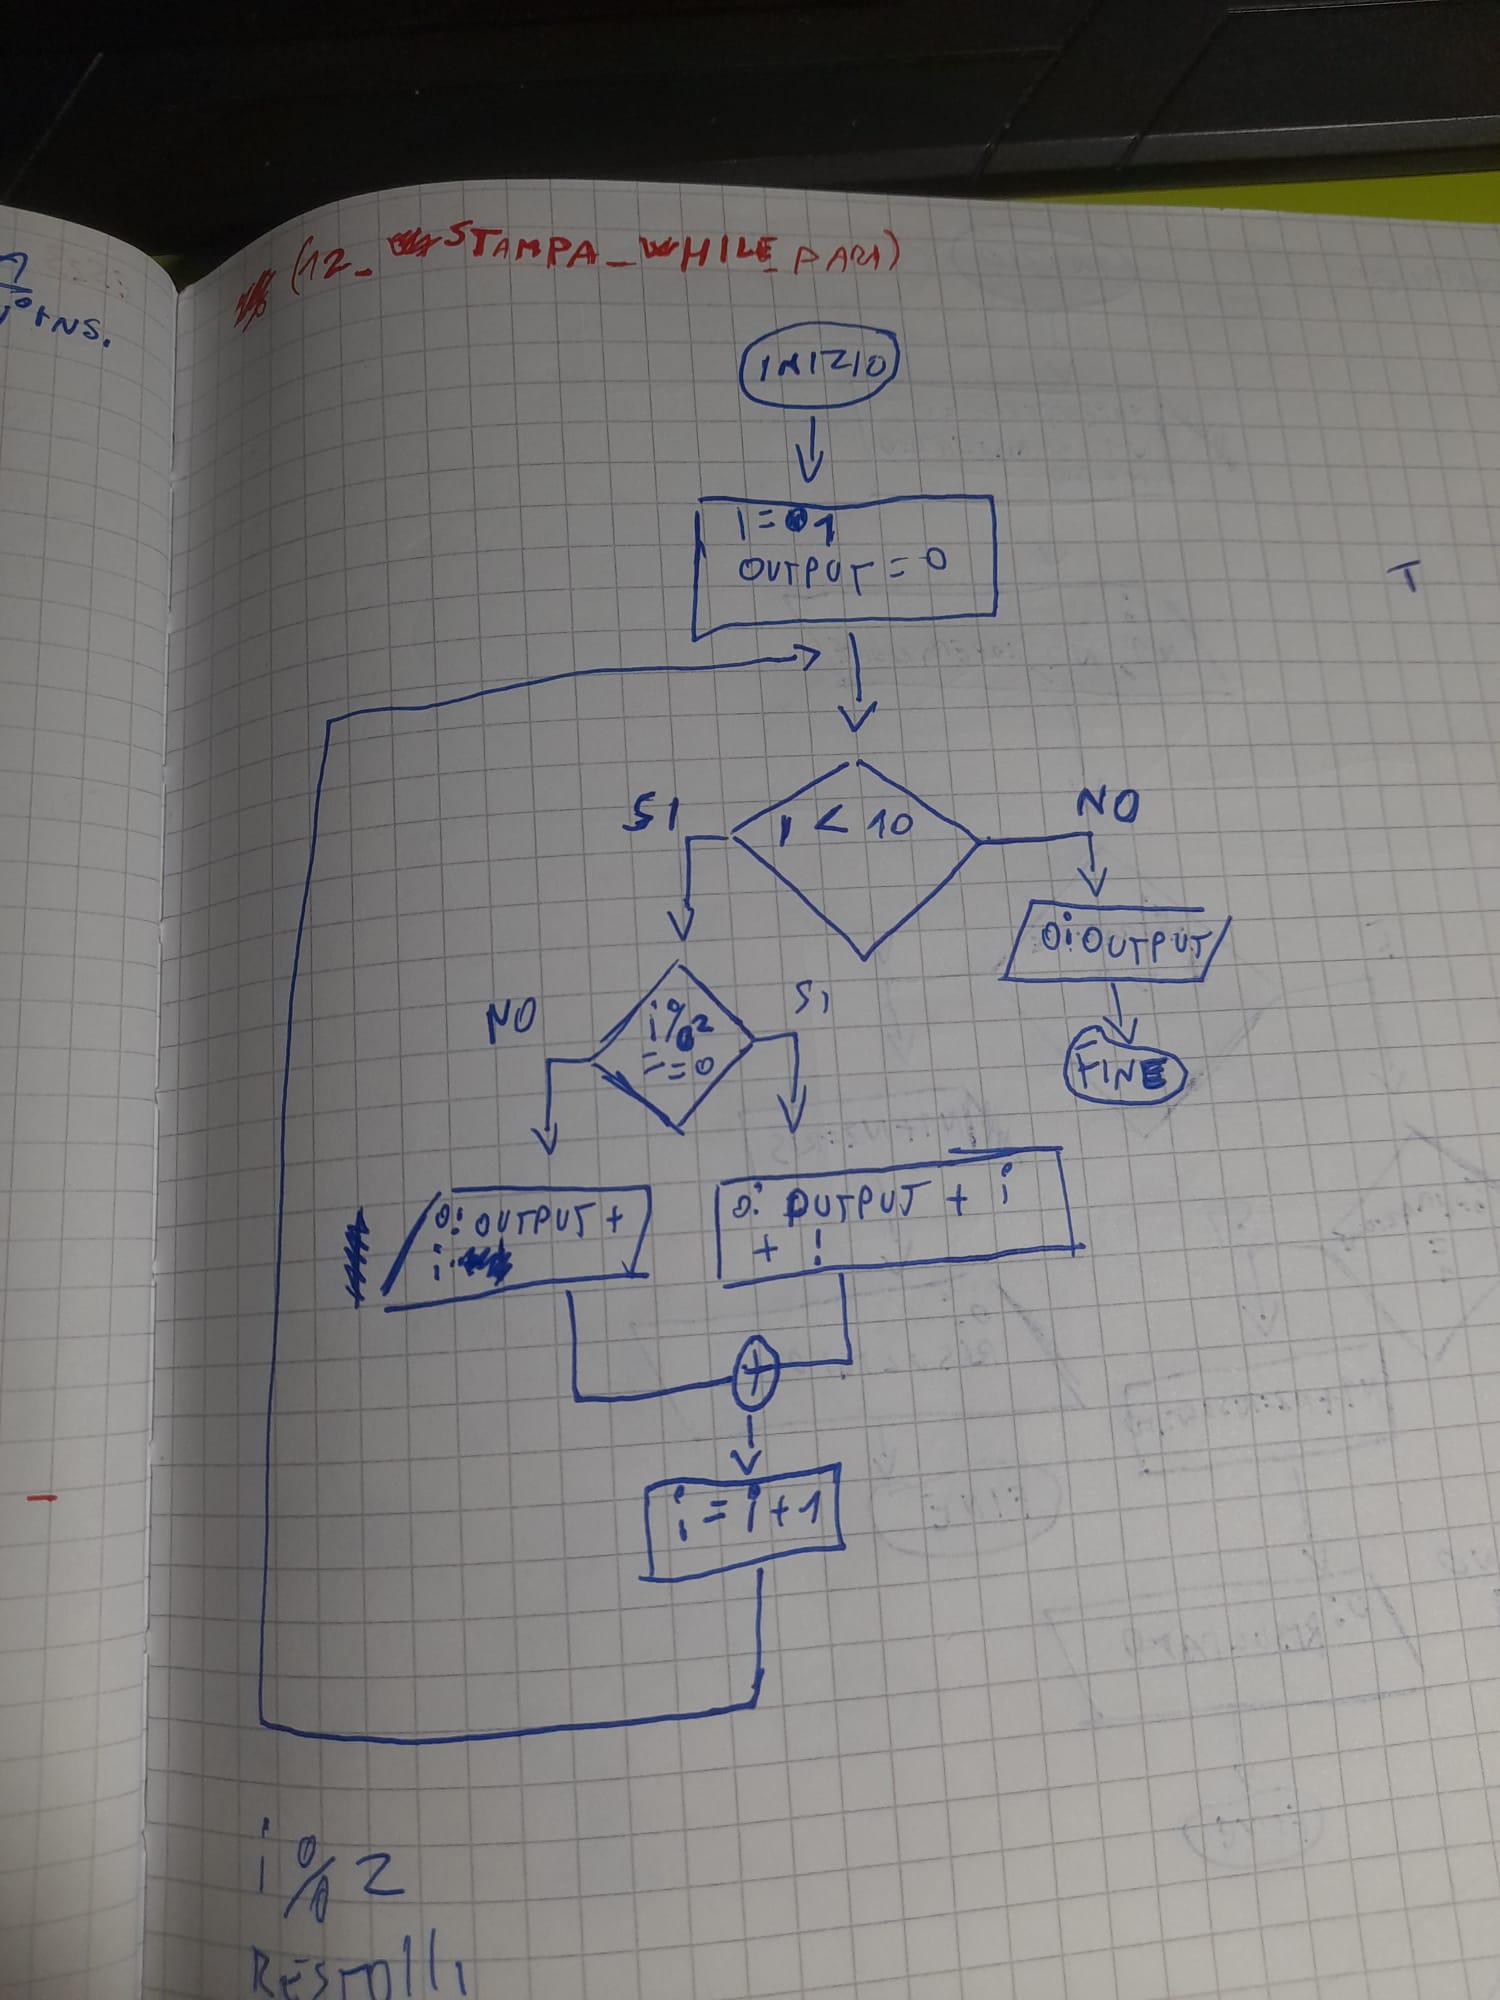 (12_ STAMPA_WHILE_PARI)
INS.
INIZIO
i = 1
OUTPUT = 0
T
SI
i < 10
NO
O: OUTPUT
FINE
NO
i%2
==0
SI
O: OUTPUT +
i
O: OUTPUT + i
+ !
+
i = i+1
i % 2